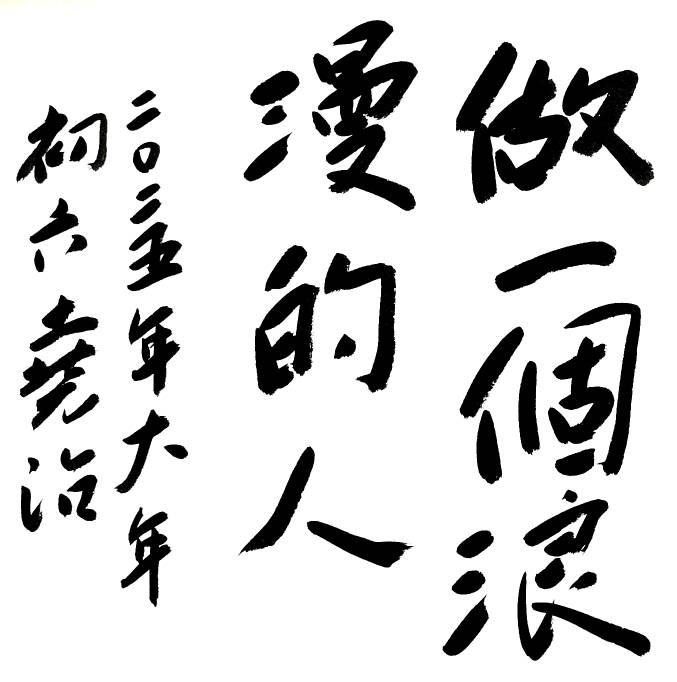 做一個浪
漫的人
二〇二五年大年
初六堯治